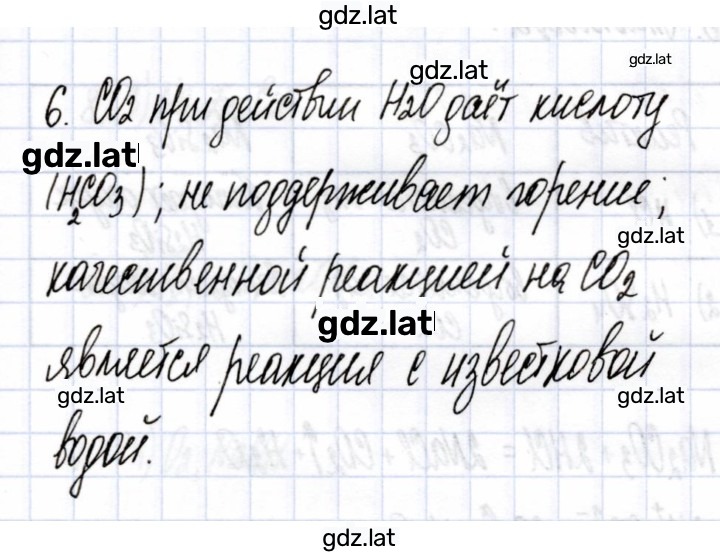 gdz.lat
gdz.lat
gdz.lat
6. CO2 при действии H2O даёт кислоту
gdz.lat
(H2CO3); не поддерживает горение;
gdz.lat
качественной реакцией на CO2
gdz.lat
является реакция с известковой
gdz.lat
gdz.lat
водой.
gdz.lat